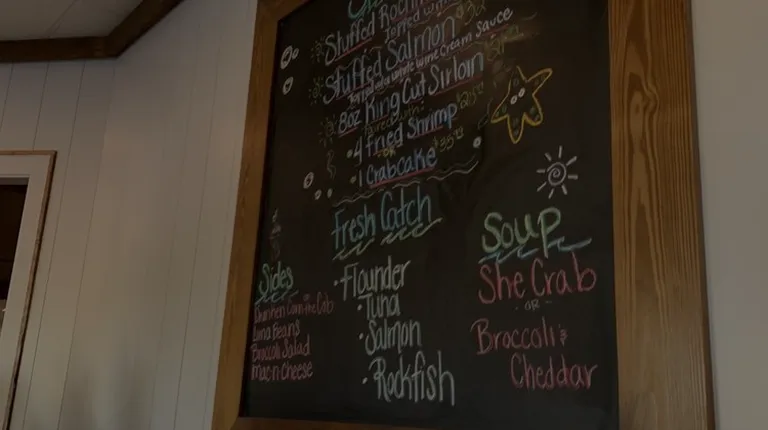 Stuffed Rockfish
Topped with
Stuffed Salmon
Topped with a white wine cream sauce
8oz King Cut Sirloin
paired with:
• 4 fried Shrimp
or
• 1 Crabcake
Fresh Catch
• Flounder
• Tuna
• Salmon
• Rockfish
Sides
Drunken Corn on the Cob
Lima Beans
Broccoli Salad
Mac-n-Cheese
Soup
She Crab
- OR -
Broccoli &
Cheddar